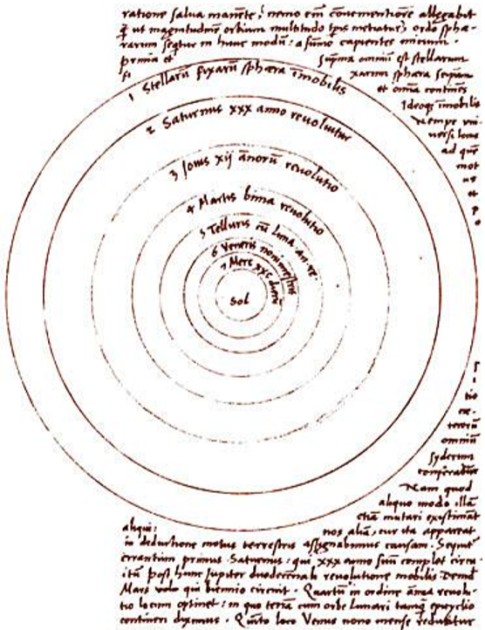 ratione salva manēte, nemo em̄ convenientiorē allegabit
q̄ ut magnitudinē orbium multitudo tp̄is metiatur, ordo sphæ-
rarum sequitur in hunc modū: a sum̄o capientes initium.
prima et suprema omniū est stellarum
fixarum sphæra seipsam
et omnia continēs
Ideoq; im̄obilis
nempe uni-
versi locus
ad quē
mot
et
1 Stellarū fixarū sphæra im̄obilis
2 Saturnus xxx anno revoluitur
3 Jovis xij añorū revolutio
4 Martis bima revolutio
5 Telluris cū Luna an. re
6 Veneris nonimestris
7 Merc xxc dierū
Sol
tio
cæ-
terorū
omniū
syderum
conferatur
Nam quod
aliquo modo illā
etiā mutari existimāt
aliqui: nos aliā, cur ita appareat
in deductione motus terrestris assignabimus causam. Sequit̄
errantium primus Saturnus: qui xxx anno suū complet circu-
itū post hunc Jupiter duodecennali revolutione mobilis Demū
Mars volo qui biennio circuit. Quartū in ordine añua revolu-
tio locum optinet: in quo terrā cum orbe Lunari tanq̄ epicyclo
contineri diximus. Quīto loco Venus nono mense reducitur